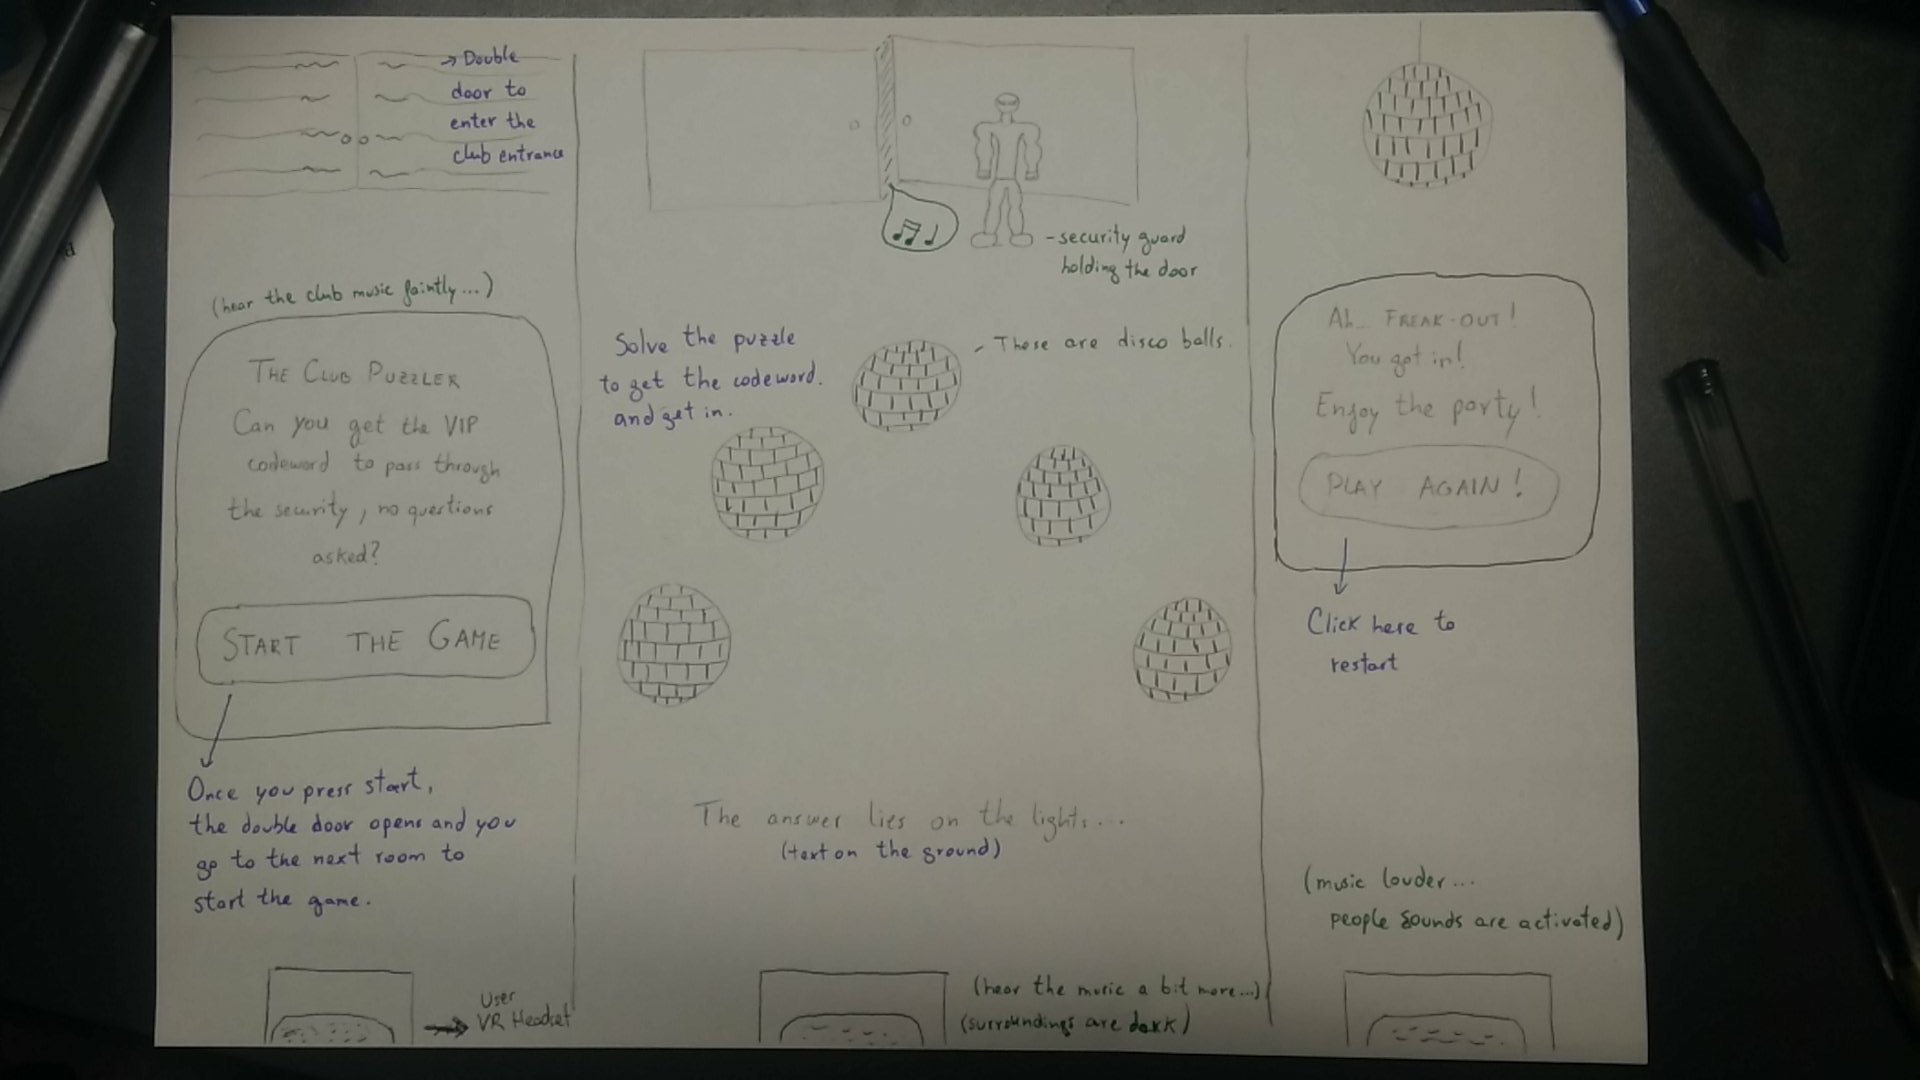 → Double
door to
enter the
club entrance
(hear the club music faintly...)
THE CLUB PUZZLER
Can you get the VIP
codeword to pass through
the security, no questions
asked?
START THE GAME
Once you press start,
the double door opens and you
go to the next room to
start the game.
User
VR Headset
- security guard
holding the door
Solve the puzzle
to get the codeword.
and get in.
- These are disco balls.
The answer lies on the lights...
(text on the ground)
(hear the music a bit more...)
(surroundings are dark)
Ah... FREAK-OUT!
You got in!
Enjoy the party!
PLAY AGAIN!
Click here to
restart
(music louder...
people sounds are activated)